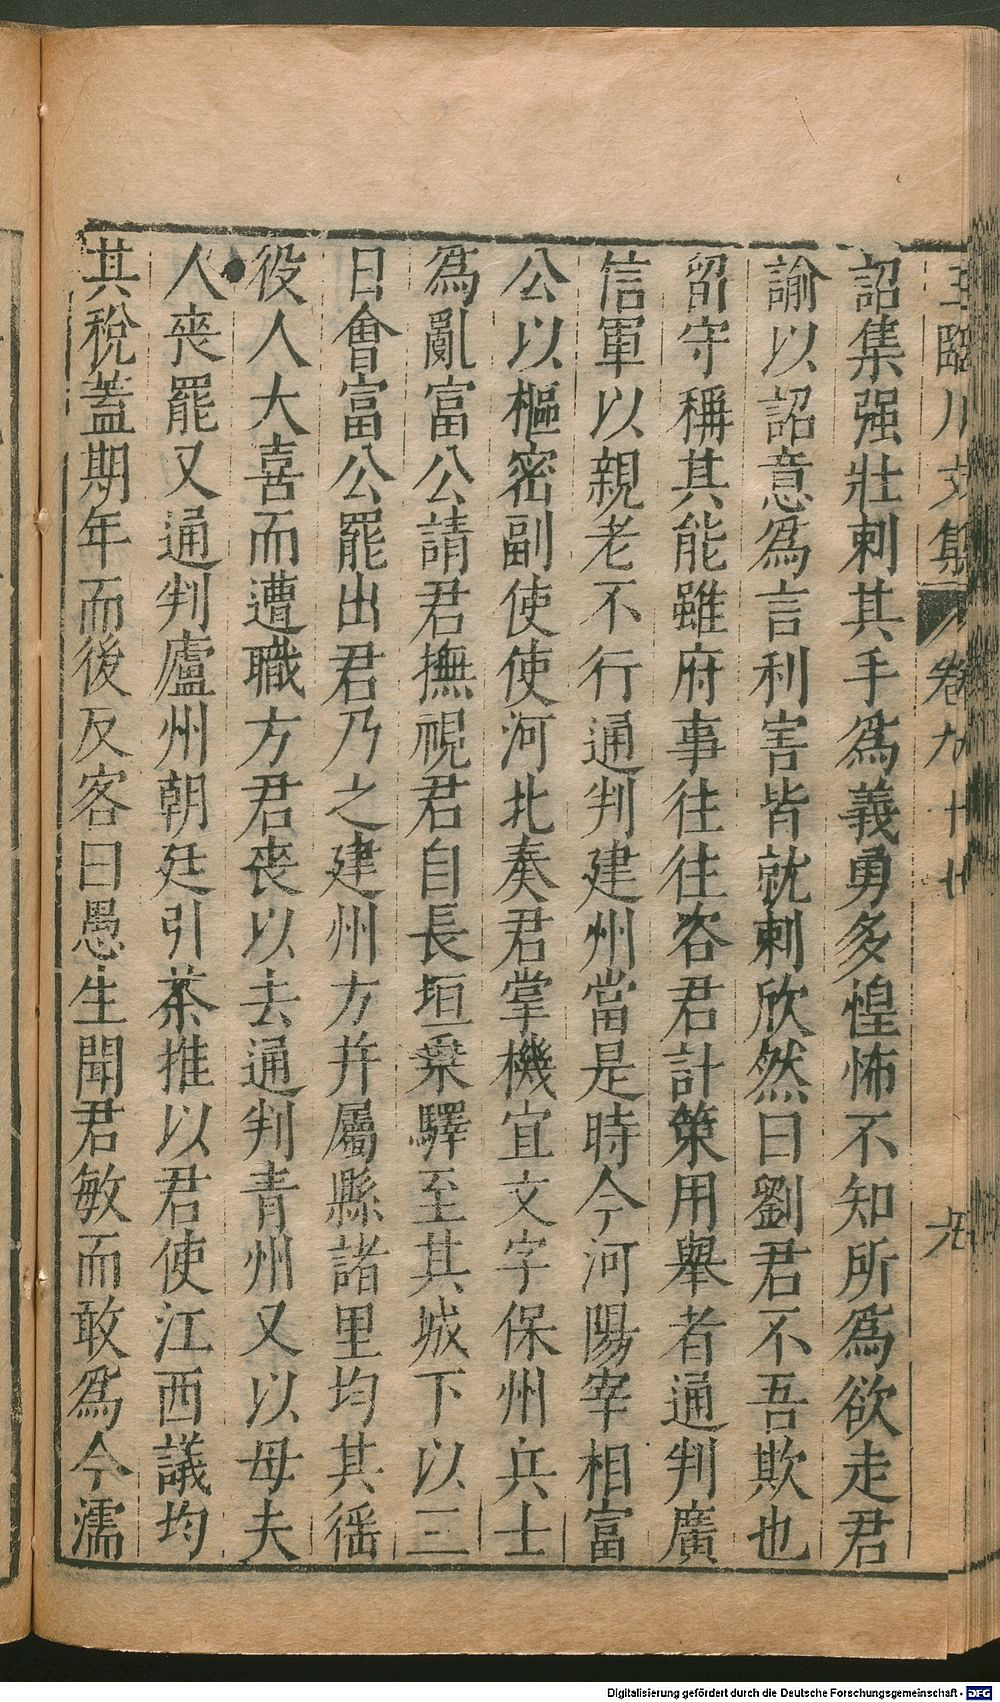 王臨川文集 卷九十七 九
詔集强壯刺其手爲義勇多惶怖不知所爲欲走君
諭以詔意爲言利害皆就刺欣然曰劉君不吾欺也
留守稱其能雖府事往往咨君計策用舉者通判廣
信軍以親老不行通判建州當是時今河陽宰相富
公以樞密副使使河北奏君掌機宜文字保州兵士
爲亂富公請君撫視君自長垣乗驛至其城下以三
日會富公罷出君乃之建州方并屬縣諸里均其徭
役人大喜而遭職方君喪以去通判青州又以母夫
人喪罷又通判廬州朝廷引茶推以君使江西議均
其稅蓋期年而後反客曰愚生聞君敏而敢爲今濡
Digitalisierung gefördert durch die Deutsche Forschungsgemeinschaft - DFG